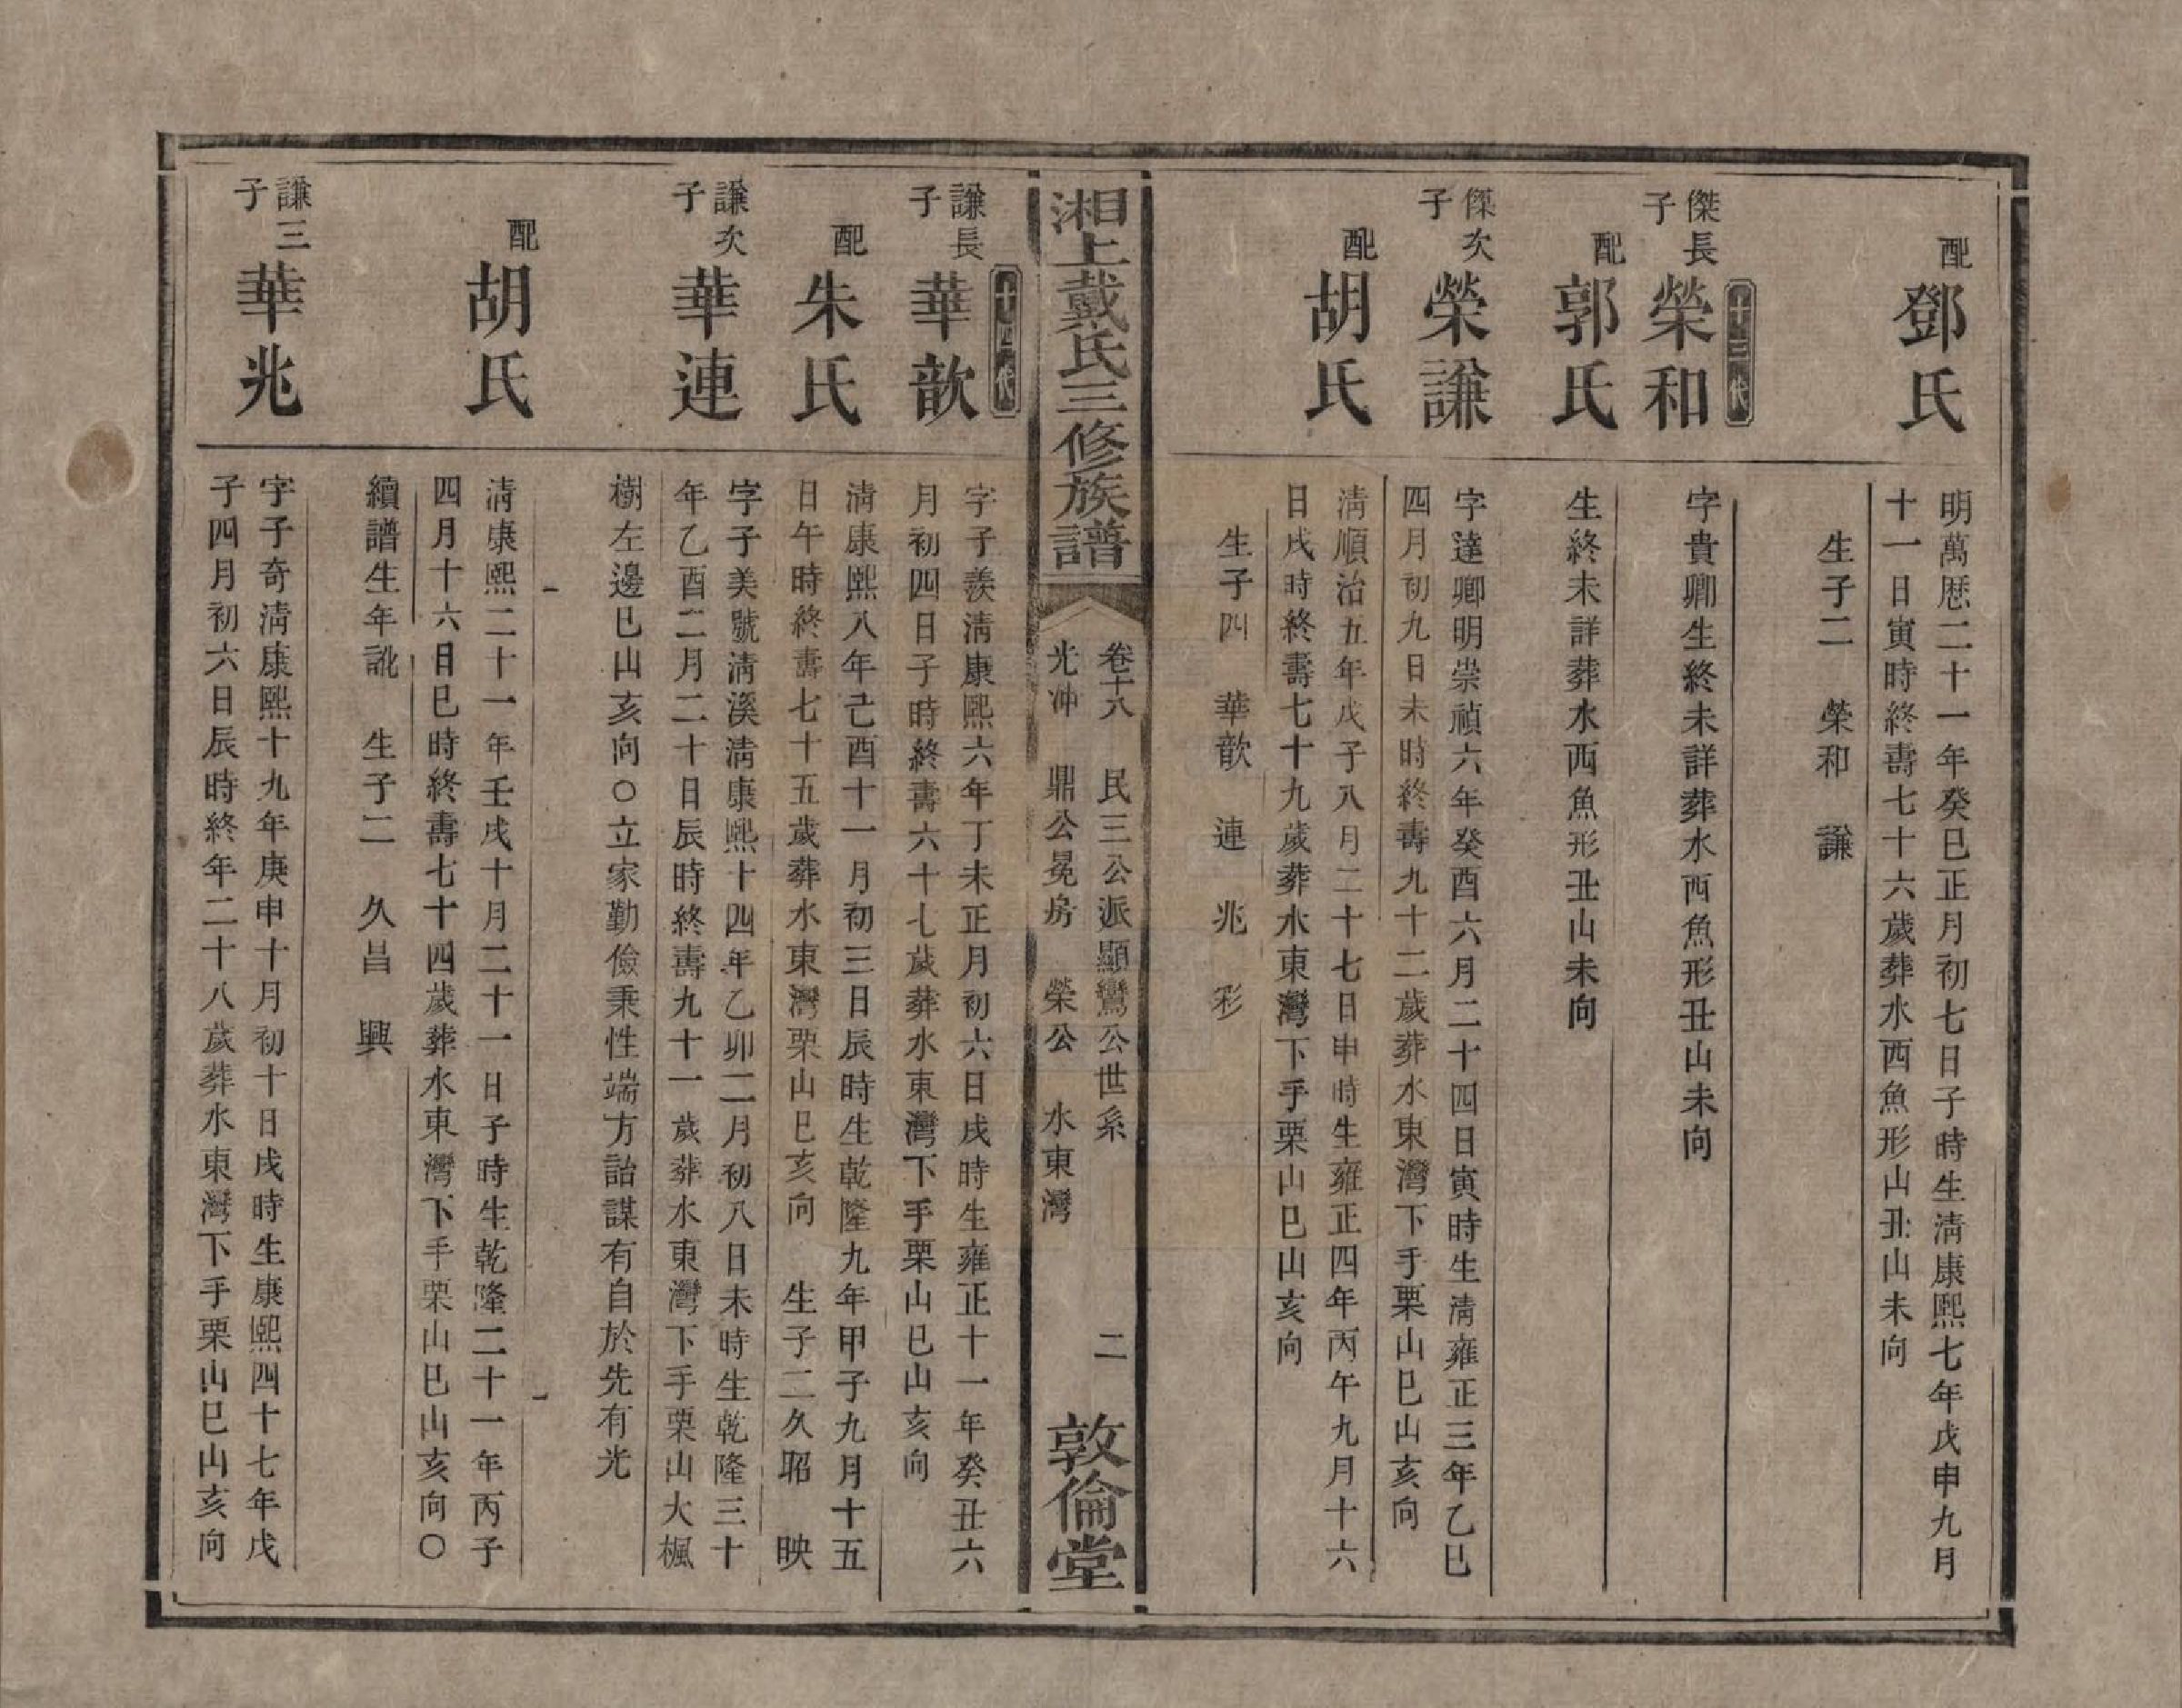 配
鄧氏
明萬厯二十一年癸巳正月初七日子時生淸康熙七年戊申九月
十一日寅時終壽七十六歲葬水西魚形山丑山未向
生子二　榮和　謙
十三代
傑長
子
榮和
字貴卿生終未詳葬水西魚形丑山未向
配
郭氏
生終未詳葬水西魚形丑山未向
傑次
子
榮謙
字達卿明崇禎六年癸酉六月二十四日寅時生淸雍正三年乙巳
四月初九日未時終壽九十二歲葬水東灣下手栗山巳山亥向
配
胡氏
淸順治五年戊子八月二十七日申時生雍正四年丙午九月十六
日戌時終壽七十九歲葬水東灣下手栗山巳山亥向
生子四　華歆　連　兆　彩
湘上戴氏三修族譜
卷十八　民三公派顯鸞公世系　二
光冲　鼎公冕房　榮公　水東灣
敦倫堂
十四代
謙長
子
華歆
字子羨淸康熙六年丁未正月初六日戌時生雍正十一年癸丑六
月初四日子時終壽六十七歲葬水東灣下手栗山巳山亥向
配
朱氏
淸康熙八年己酉十一月初三日辰時生乾隆九年甲子九月十五
日午時終壽七十五歲葬水東灣栗山巳亥向　生子二久昭　映
謙次
子
華連
字子美號淸溪淸康熙十四年乙卯二月初八日未時生乾隆三十
年乙酉二月二十日辰時終壽九十一歲葬水東灣下手栗山大楓
樹左邊巳山亥向〇立家勤儉秉性端方詒謀有自於先有光
配
胡氏
淸康熙二十一年壬戌十月二十一日子時生乾隆二十一年丙子
四月十六日巳時終壽七十四歲葬水東灣下手栗山巳山亥向〇
續譜生年訛　生子二　久昌　興
謙三
子
華兆
字子奇淸康熙十九年庚申十月初十日戌時生康熙四十七年戊
子四月初六日辰時終年二十八歲葬水東灣下手栗山巳山亥向